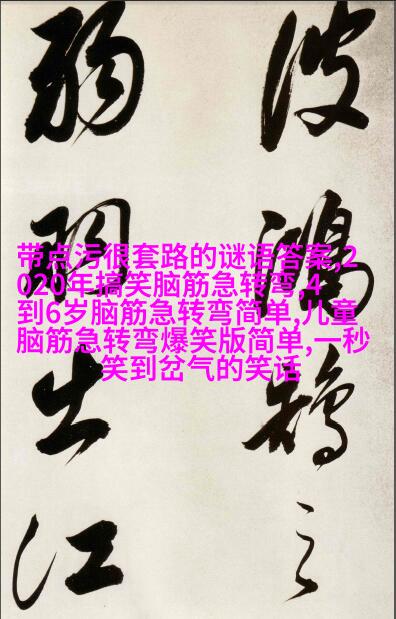 波鴻鵠之
出江
带点污很套路的谜语答案,2
020年搞笑脑筋急转弯,4
到6岁脑筋急转弯简单,儿童
脑筋急转弯爆笑版简单,一秒
笑到岔气的笑话